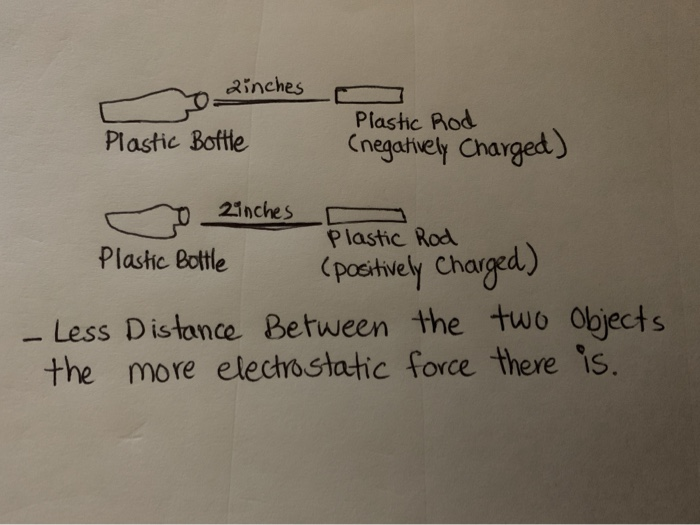 2inches
Plastic Bottle
Plastic Rod
(negatively Charged)
2inches
Plastic Bottle
Plastic Rod
(positively Charged)
- Less Distance Between the two Objects
the more electrostatic force there is.